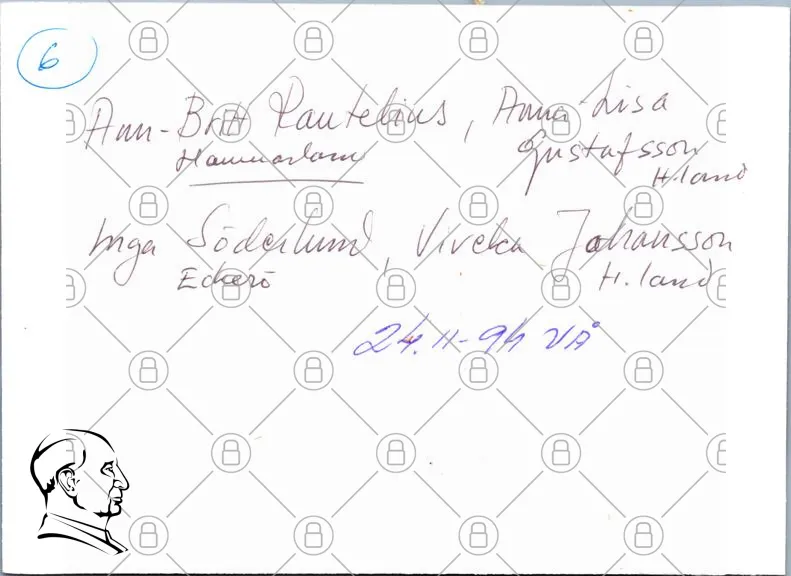 6
Ann-Britt Pautelius, Anna-Lisa
Hammarland Gustafsson
H.land
Inga Söderlund, Viveka Johansson
Eckerö H. land
24.11-94 VÅ